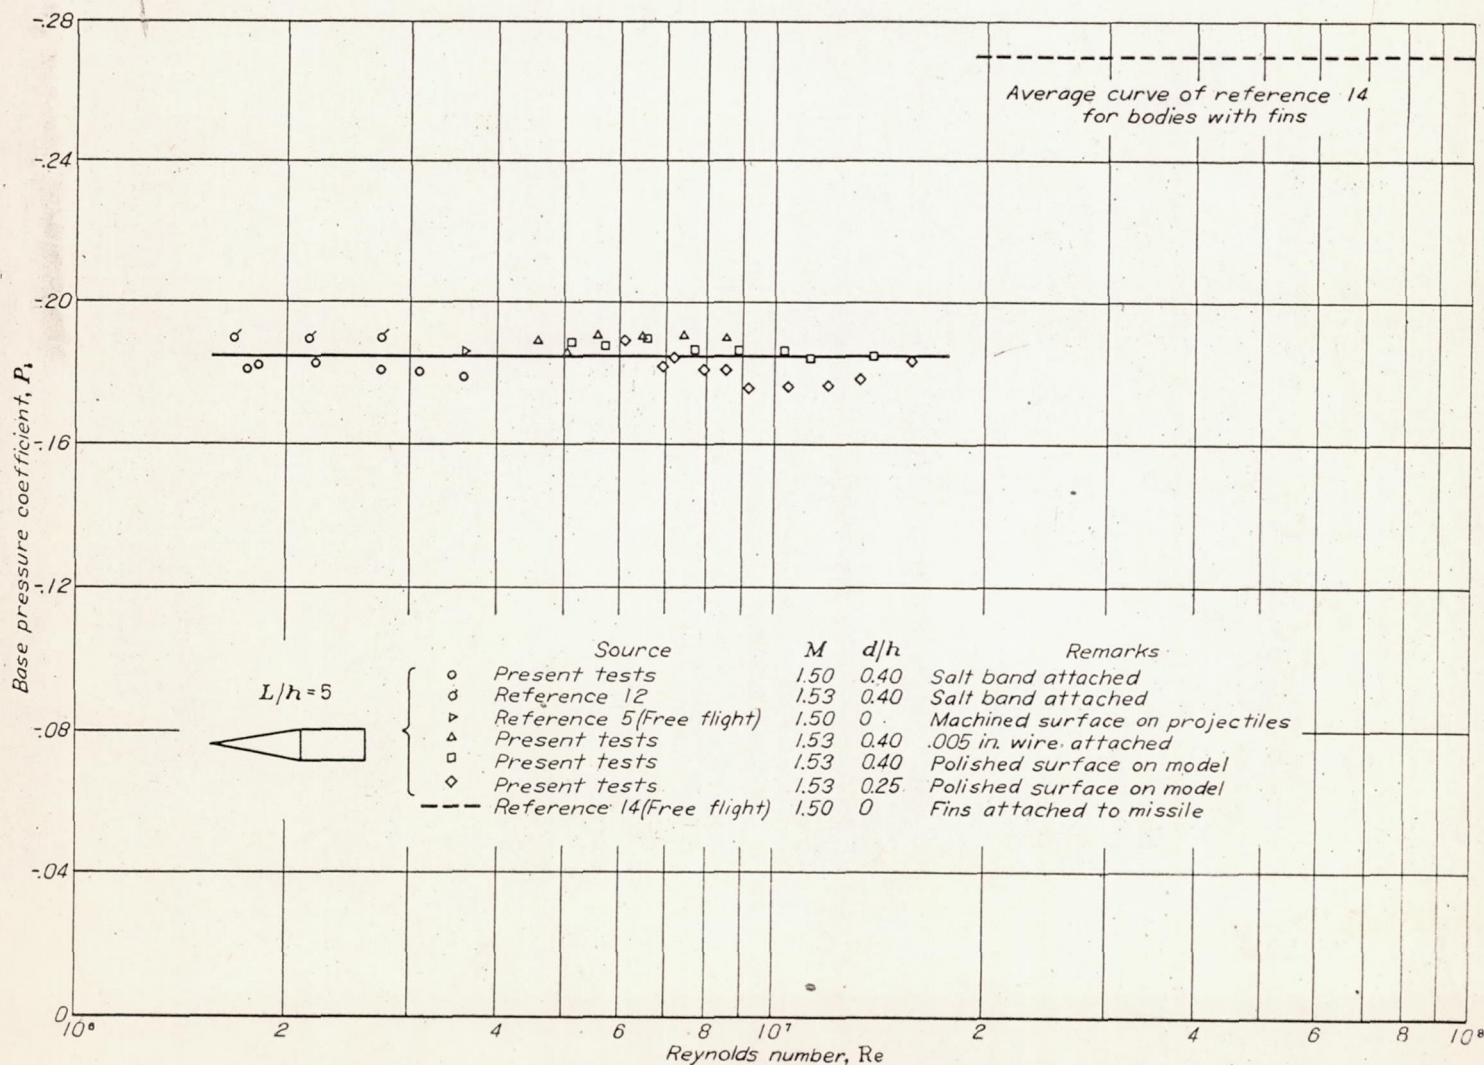 -.28
-.24
-.20
-.16
-.12
-.08
-.04
0
Base pressure coefficient,
Average curve of reference 14
for bodies with fins
L/h=5
Source M d/h Remarks
Present tests 1.50 0.40 Salt band attached
Reference 12 1.53 0.40 Salt band attached
Reference 5(Free flight) 1.50 0 Machined surface on projectiles
Present tests 1.53 0.40 .005 in. wire attached
Present tests 1.53 0.40 Polished surface on model
Present tests 1.53 0.25 Polished surface on model
Reference 14(Free flight) 1.50 0 Fins attached to missile
10⁶ 2 4 6 8 10⁷ 2 4 6 8 10⁸
Reynolds number, Re